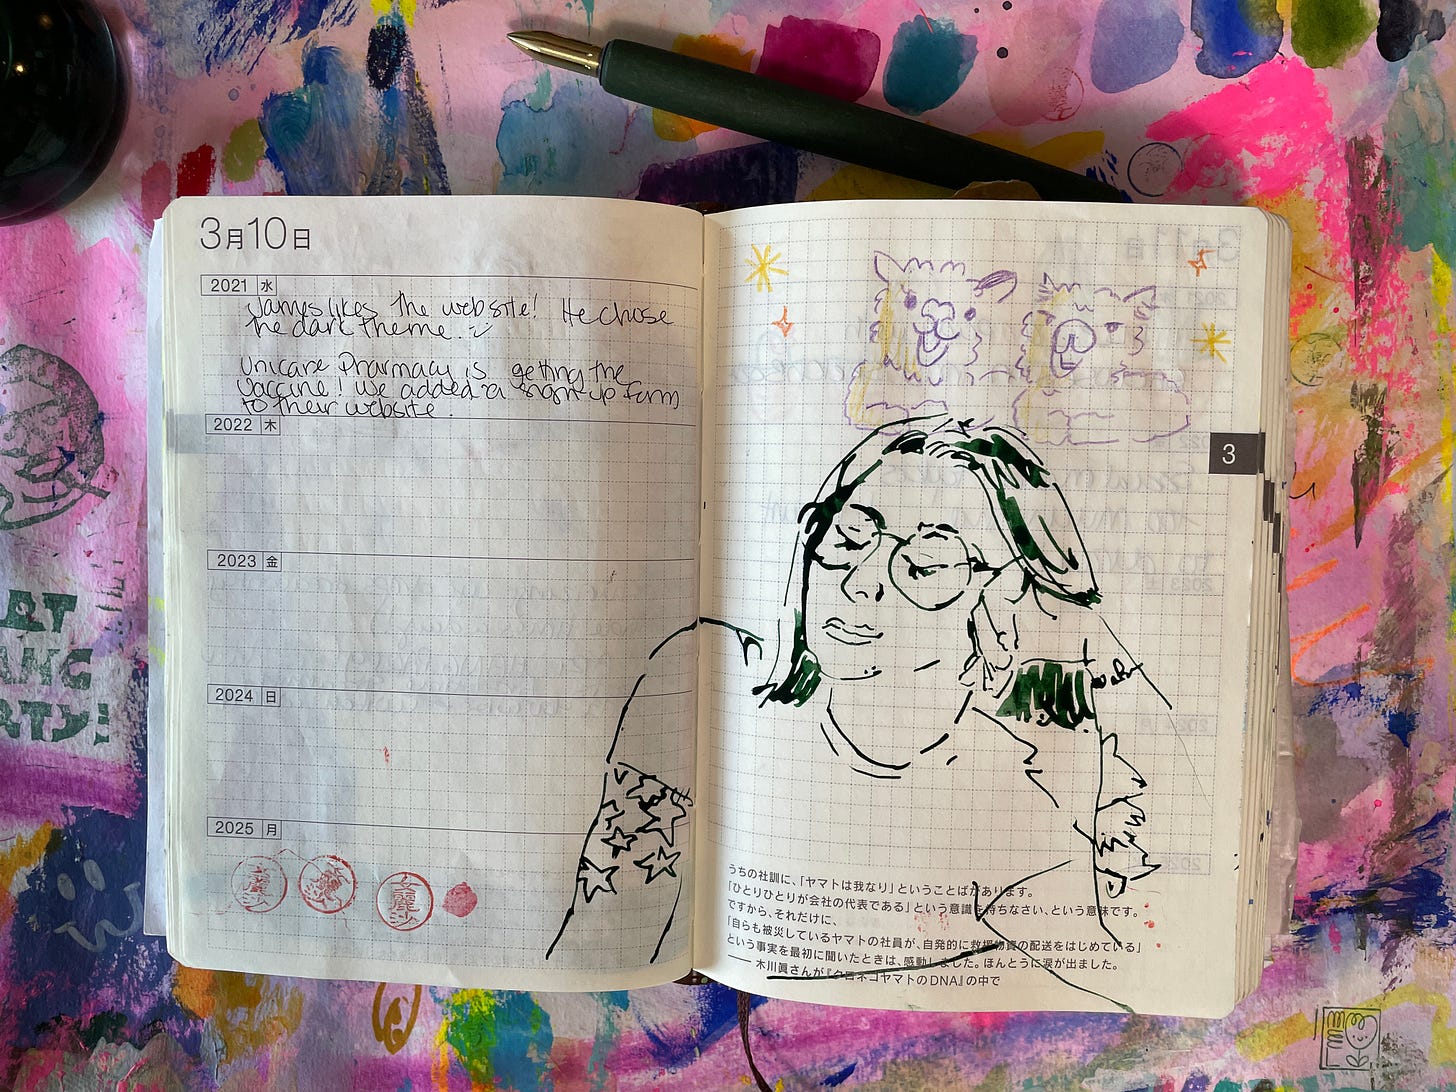 3月10日
2021 水
James likes the website! He chose
the dark theme.
Unicare Pharmacy is getting the
vaccine! We added a sign up form
to their website.
2022 木
2023 金
2024 日
2025 月
3
うちの社訓に、「ヤマトは我なり」ということばがあります。
「ひとりひとりが会社の代表である」という意識を持ちなさい、という意味です。
ですから、それだけに、
「自らも被災しているヤマトの社員が、自発的に救援物資の配送をはじめている」
という事実を最初に聞いたときは、感動しました。ほんとうに涙が出ました。
—— 木川眞さんが『クロネコヤマトのDNA』の中で